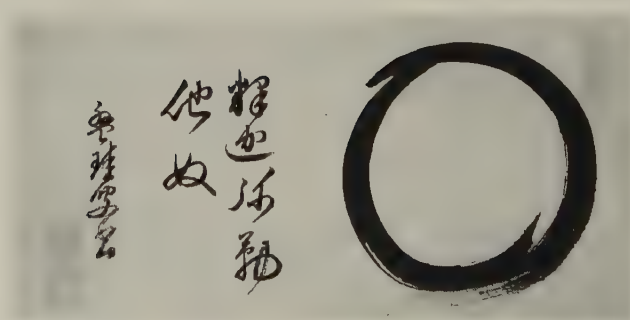 釋迦弥勒
他奴
盤珪叟書